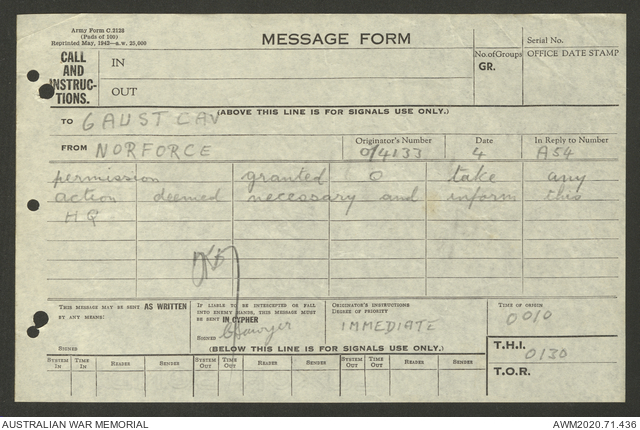 Army Form C.2128
(Pads of 100)
Reprinted May, 1942—a.w. 25,000
MESSAGE FORM
Serial No.
CALL AND INSTRUC-TIONS.
IN
OUT
No. of Groups
GR.
OFFICE DATE STAMP
(ABOVE THIS LINE IS FOR SIGNALS USE ONLY.)
TO 6 AUST CAV
FROM NORFORCE
Originator's Number
0/4133
Date
4
In Reply to Number
A54
permission granted O take any
action deemed necessary and inform this
HQ
THIS MESSAGE MAY BE SENT AS WRITTEN
BY ANY MEANS:
SIGNED
IF LIABLE TO BE INTERCEPTED OR FALL
INTO ENEMY HANDS, THIS MESSAGE MUST
BE SENT IN CYPHER
SIGNED
ORIGINATOR'S INSTRUCTIONS
DEGREE OF PRIORITY
IMMEDIATE
TIME OF ORIGIN
0010
(BELOW THIS LINE IS FOR SIGNALS USE ONLY.)
T.H.I.
0130
T.O.R.
SYSTEM IN
TIME IN
READER
SENDER
SYSTEM OUT
TIME OUT
READER
SENDER
SYSTEM OUT
TIME OUT
READER
SENDER
AUSTRALIAN WAR MEMORIAL
AWM2020.71.436